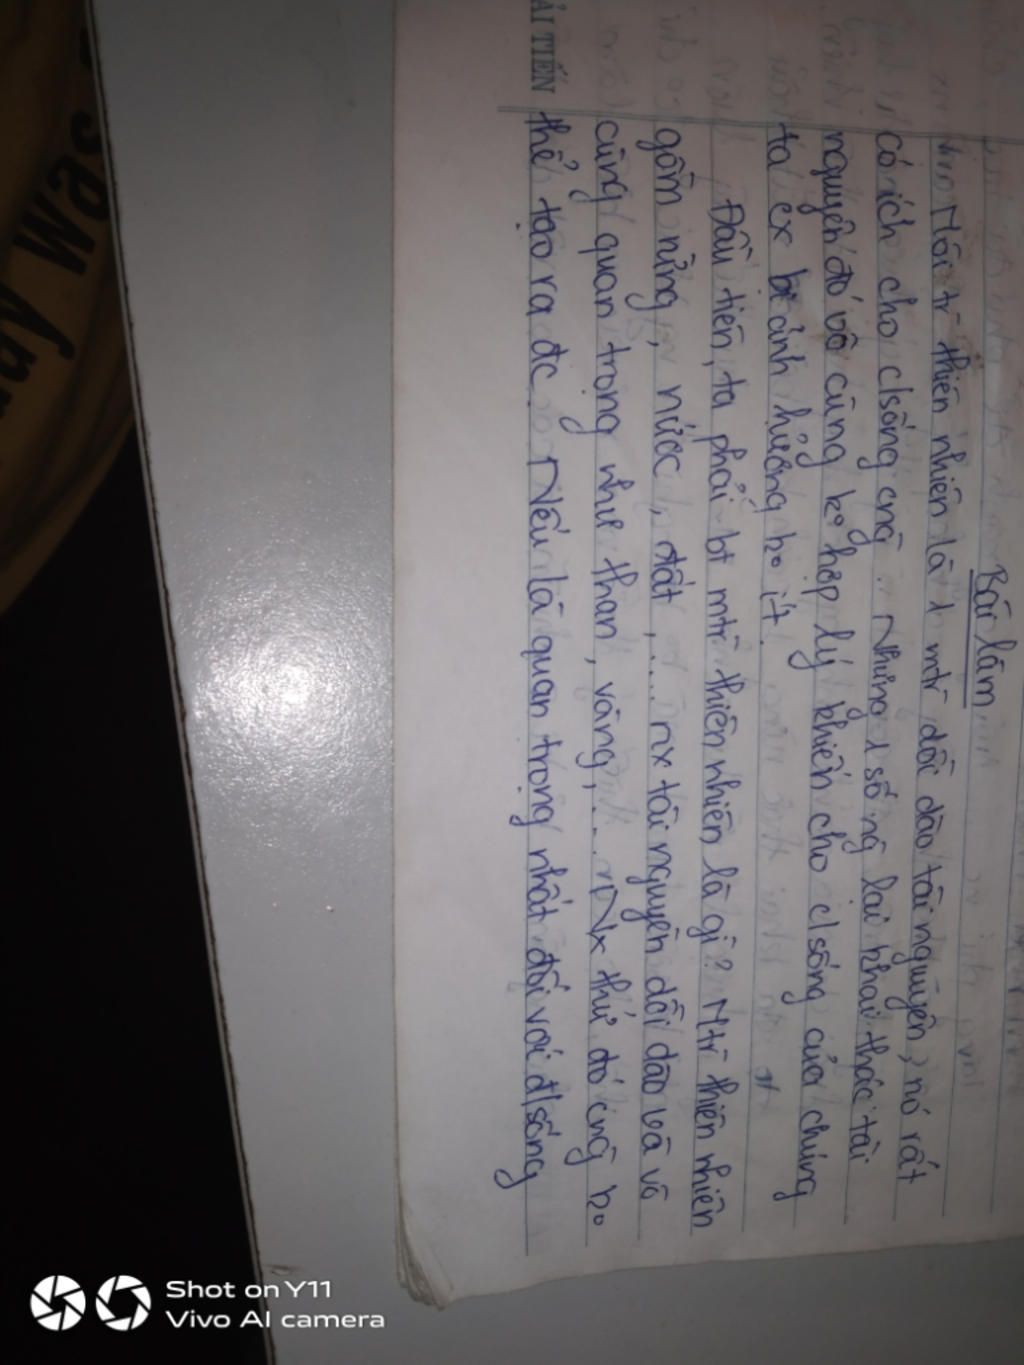 Bài làm
Môi tr thiên nhiên là 1 mtr dồi dào tài nguyên, nó rất
có ích cho c/sống cng Nhưng 1 số ng lại khai thác tài
nguyên đó vô cùng ko hợp lý khiến cho c/sống của chúng
ta ex bị ảnh hưởng ko ít.
Đầu tiên, ta phải bt mtr thiên nhiên là gì? Mtr thiên nhiên
gồm rừng, nước, đất,... nx tài nguyên dồi dào và vô
cùng quan trọng như than, vàng,... Nx thứ đó cng ko
thể tạo ra đc Nếu là quan trọng nhất đối với đ/sống
ẢI TIẾN
ay Was
Shot on Y11
Vivo AI camera